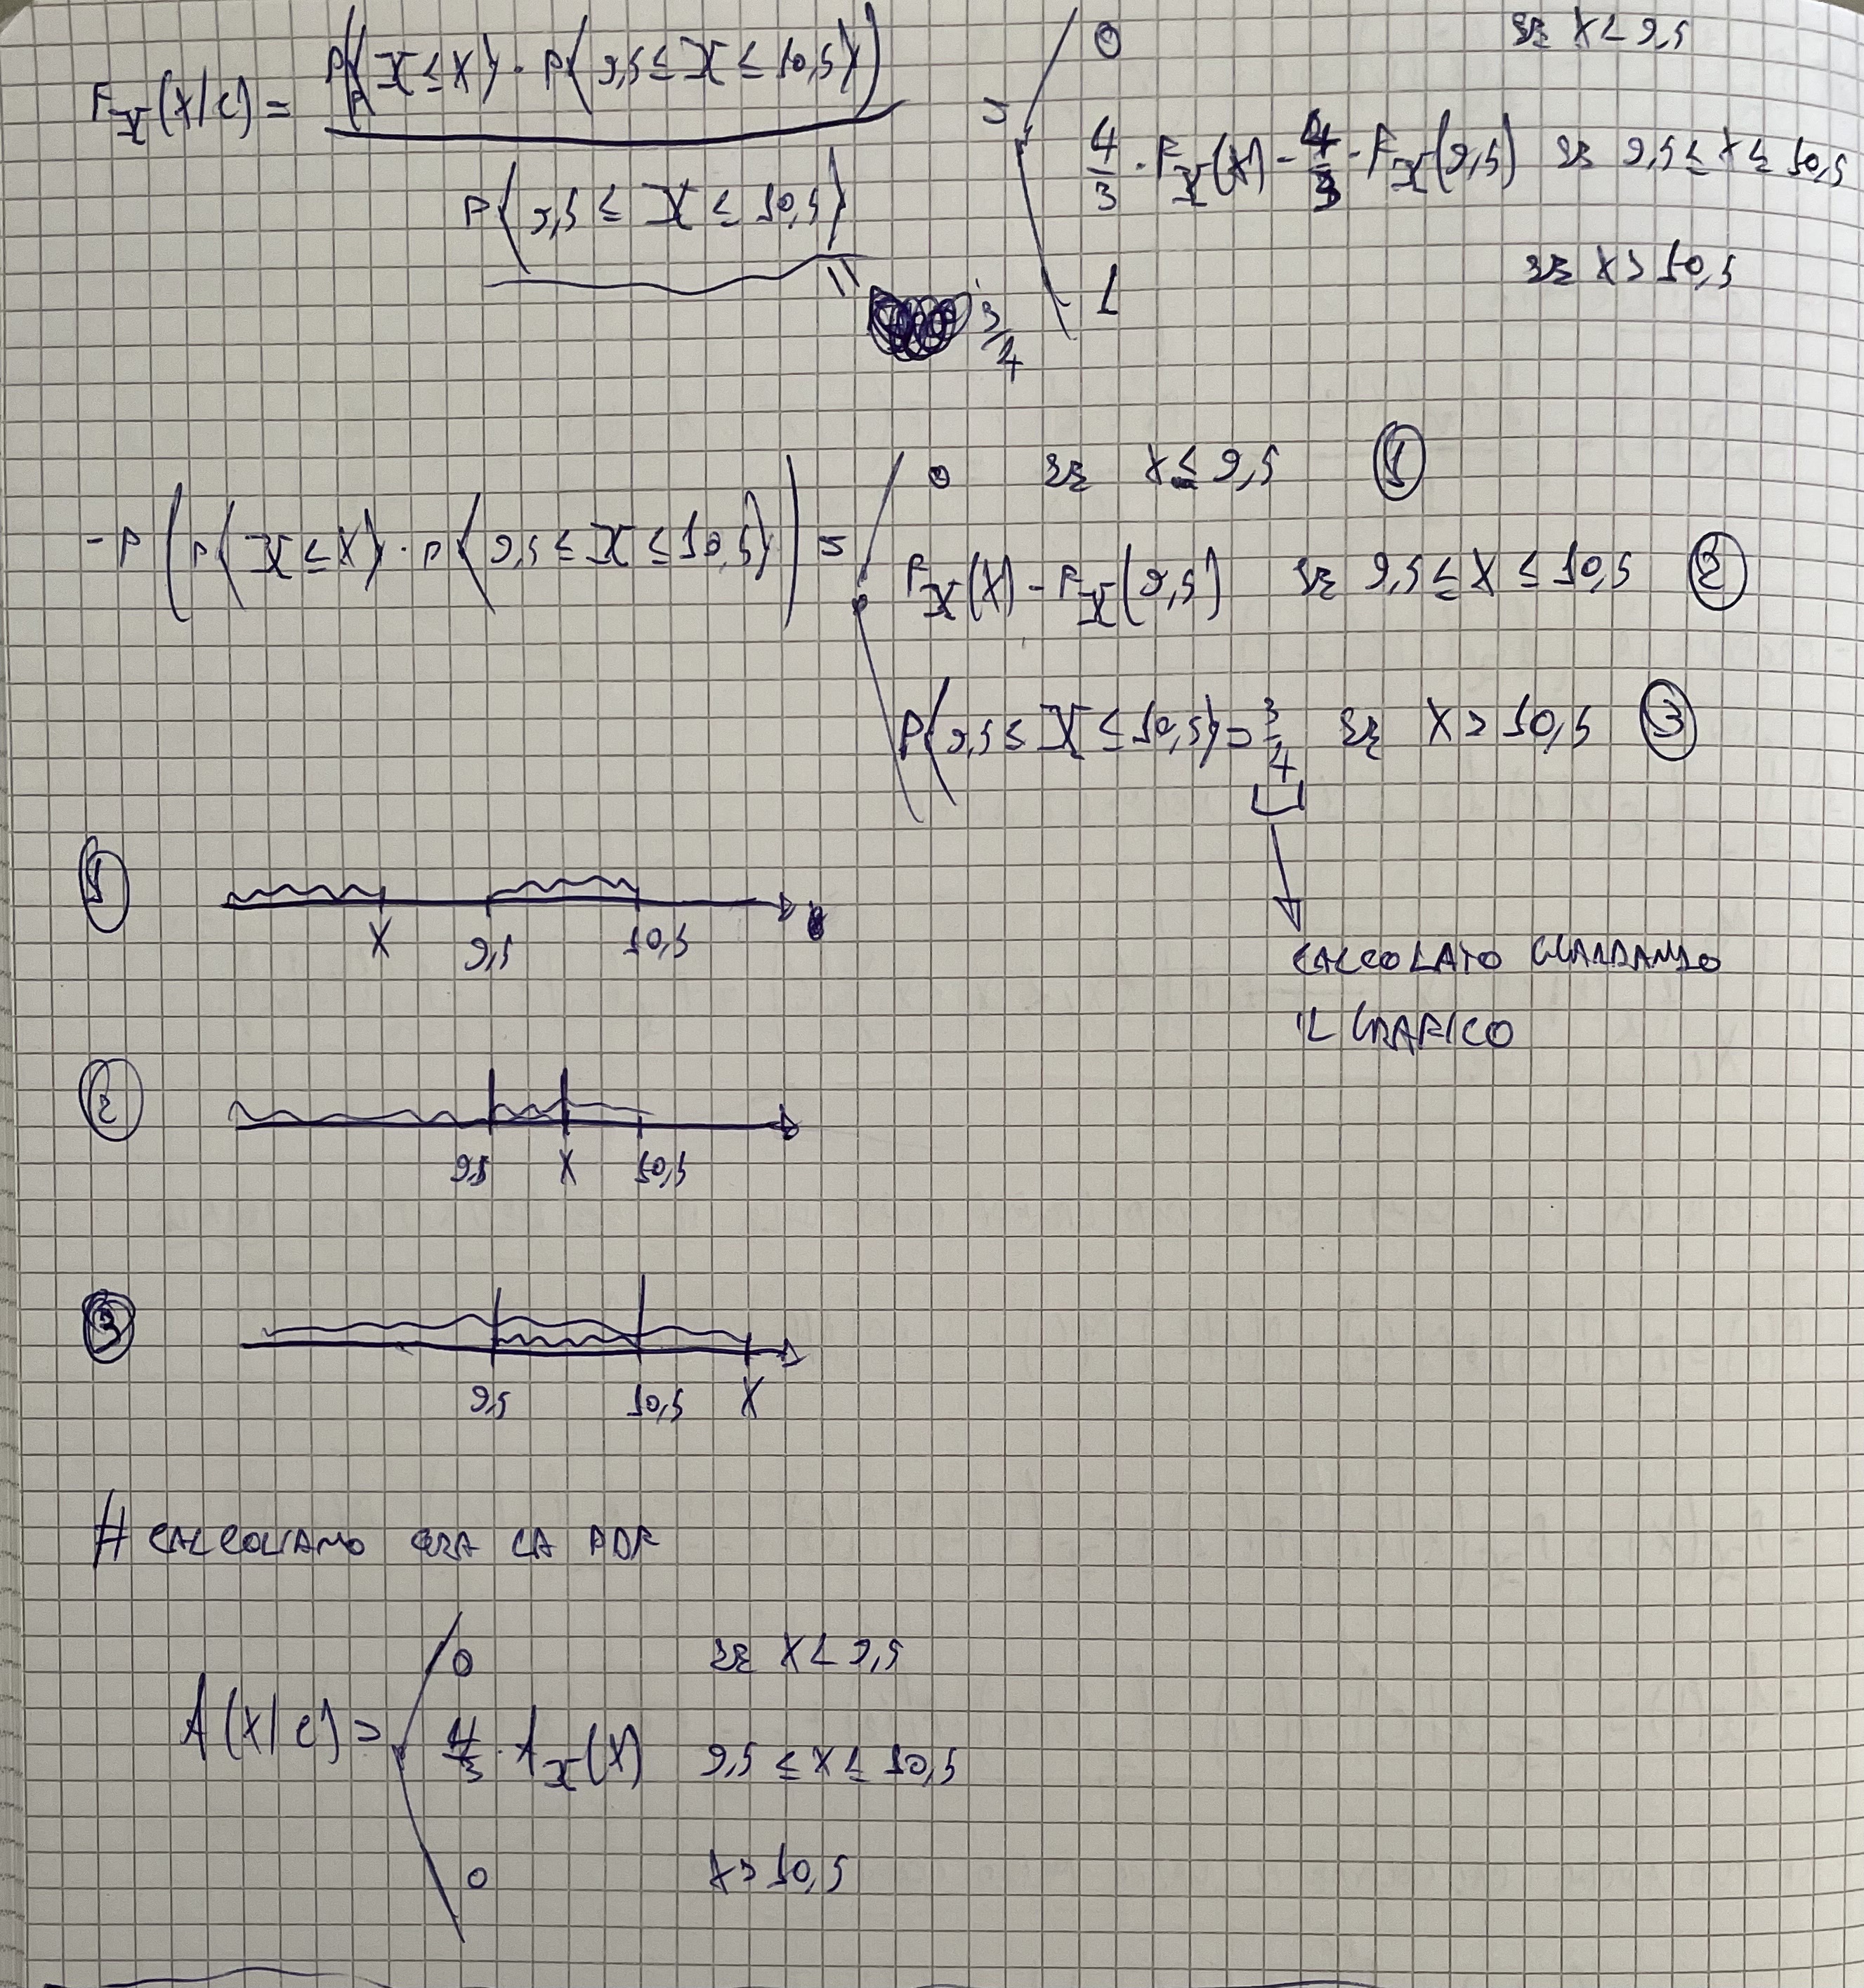 F_X(x/c) = P(P(X ≤ x) · P(9,5 ≤ X ≤ 10,5)) / P(9,5 ≤ X ≤ 10,5) = { 0 se x < 9,5
4/3 · F_X(x) - 4/3 · F_X(9,5) se 9,5 ≤ x ≤ 10,5
1 se x > 10,5
= 3/4
- P(P(X ≤ x) · P(9,5 ≤ X ≤ 10,5)) = { 0 se x ≤ 9,5 ①
F_X(x) - F_X(9,5) se 9,5 ≤ x ≤ 10,5 ②
P(9,5 ≤ X ≤ 10,5) = 3/4 se x > 10,5 ③
CALCOLATO GUARDANDO
IL GRAFICO
① x 9,5 10,5
② 9,5 x 10,5
③ 9,5 10,5 x
# CALCOLIAMO ORA LA PDF
f(x/c) = { 0 se x < 9,5
4/3 · f_X(x) 9,5 ≤ x ≤ 10,5
0 x > 10,5